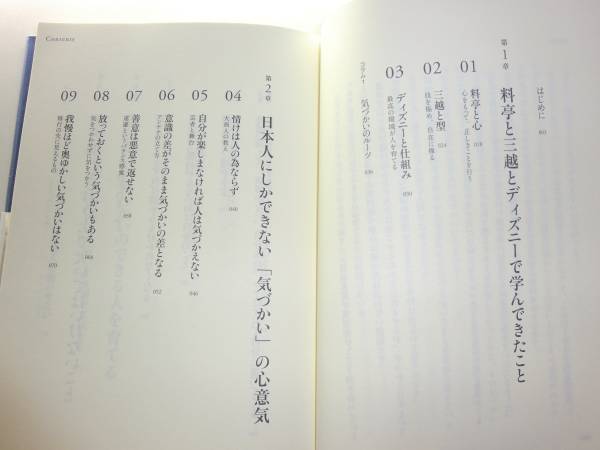 はじめに 003
第1章
料亭と三越とディズニーで学んできたこと
01
料亭と心
心をもって、正しきことを行う
018
02
三越と型
技を極め、自在に操る
024
03
ディズニーと仕組み
最高の環境が人を育てる
030
コラム1
気づかいのルーツ
036
CONTENTS
第2章
日本人にしかできない「気づかい」の心意気
04
情けは人の為ならず
大商人の教え
040
05
自分が楽しまなければ人は気づかえない
046
06
意識の差がそのまま気づかいの差となる
アンテナの立て方
052
07
善意は悪意で返せない
058
08
放っておくという気づかいもある
気をつかわせずに気をつかう
064
09
我慢ほど奥ゆかしい気づかいはない
070